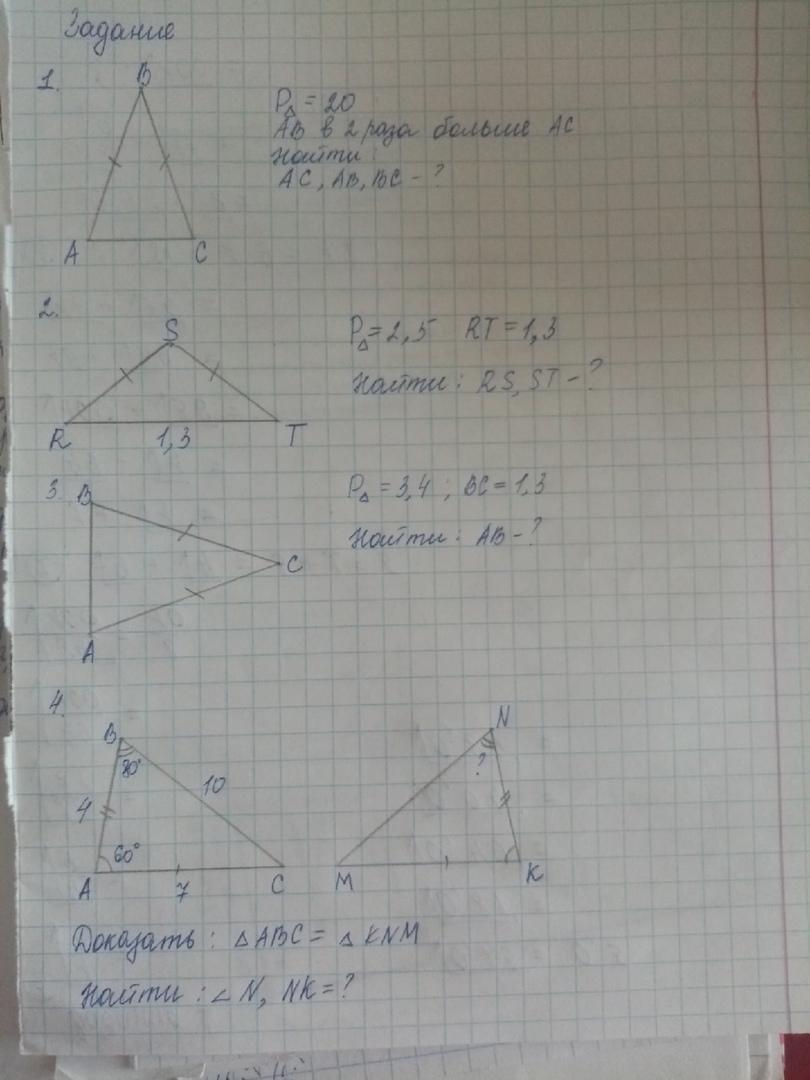 Задание
1.
B
A
C
P△ = 20
AB в 2 раза больше AC
Найти :
AC, AB, BC - ?
2.
S
R
1,3
T
P△ = 2,5 RT = 1,3
Найти : RS, ST - ?
3.
B
C
A
P△ = 3,4 ; BC = 1,3
Найти : AB - ?
4.
B
80°
10
4
60°
A
7
C
N
?
M
K
Доказать : △ABC = △KNM
Найти : ∠N, NK = ?